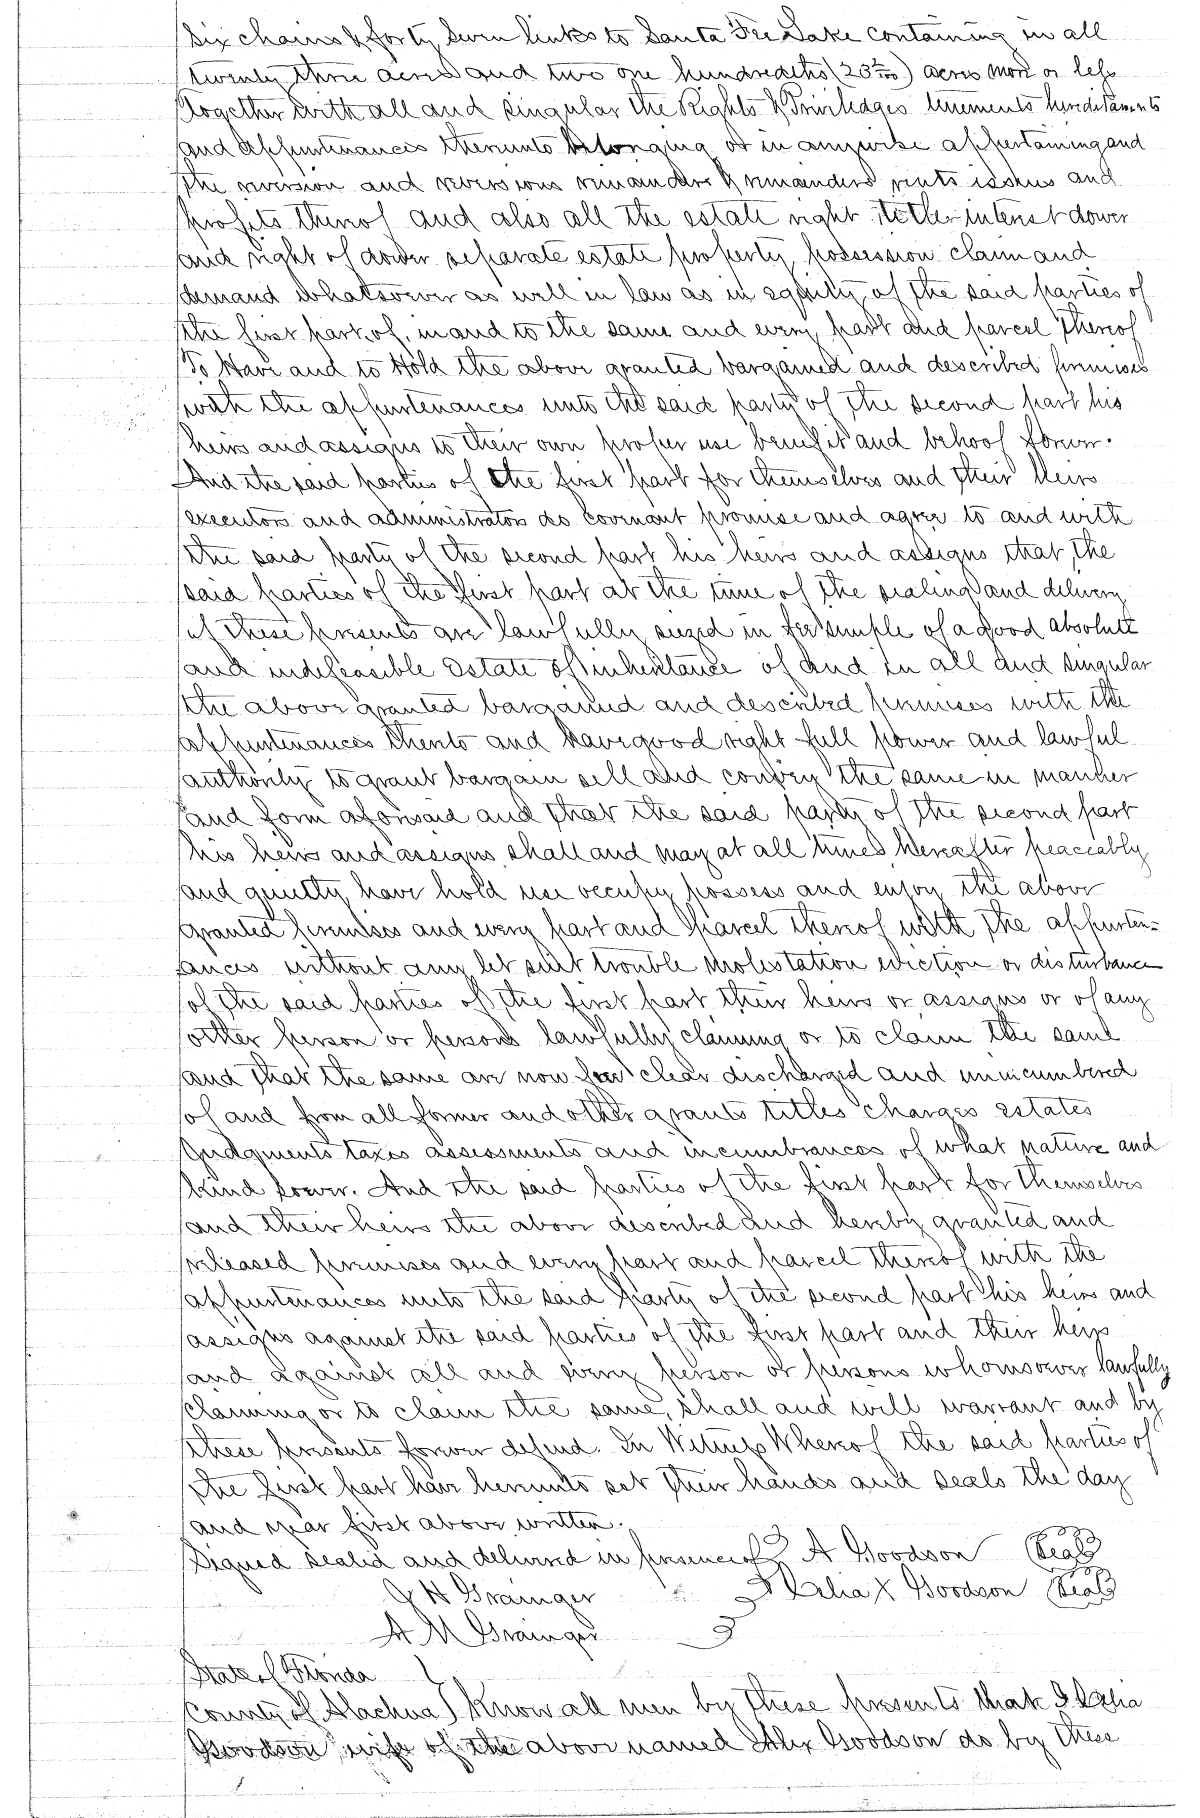 Six chains & forty Seven links to Santa Fee Lake containing in all
twenty three acres and two one hundredths (23 2/100) acres more or less
Together with all and singular the Rights & Priviledges tenements hereditaments
and appurtenances thereunto belonging or in anywise appertaining and
the reversion and reversions remainder & remainders rents issues and
profits thereof and also all the estate right title interest dower
and right of dower separate estate property possession claim and
demand whatsoever as well in law as in equity of the said parties of
the first part of, in and to the same and every part and parcel thereof
To Have and to Hold the above granted bargained and described premises
with the appurtenances unto the said party of the second part his
heirs and assigns to their own proper use benefit and behoof forever.
And the said parties of the first part for themselves and their heirs
executors and administrators do covenant promise and agree to and with
the said party of the second part his heirs and assigns that, the
said parties of the first part at the time of the sealing and delivery
of these presents are lawfully seized in fee simple of a good absolute
and indefeasible Estate of inheritance of and in all and singular
the above granted bargained and described premises with the
appurtenances thereto and have good right full power and lawful
authority to grant bargain sell and convey the same in manner
and form aforesaid and that the said party of the second part
his heirs and assigns shall and may at all times hereafter peaceably
and quietly have hold use occupy possess and enjoy the above
granted premises and every part and parcel thereof with the appurten-
ances without any let suit trouble molestation eviction or disturbance
of the said parties of the first part their heirs or assigns or of any
other person or persons lawfully claiming or to claim the same
and that the same are now free clear discharged and unincumbered
of and from all former and other grants titles charges estates
Judgments taxes assessments and incumbrances of what nature and
kind soever. And the said parties of the first part for themselves
and their heirs the above described and hereby granted and
released premises and every part and parcel thereof with the
appurtenances unto the said party of the second part his heirs and
assigns against the said parties of the first part and their heirs
and against all and every person or persons whomsoever lawfully
claiming or to claim the same, shall and will warrant and by
these presents forever defend. In Witness Whereof the said parties of
the first part have hereunto set their hands and seals the day
and year first above written.
Signed sealed and delivered in presence of A Goodson (Seal)
J H Grainger X Goodson (Seal)
A M Grainger
State of Florida
County of Alachua) Know all men by these presents that I
Goodson wife of the above named Alex Goodson do by these